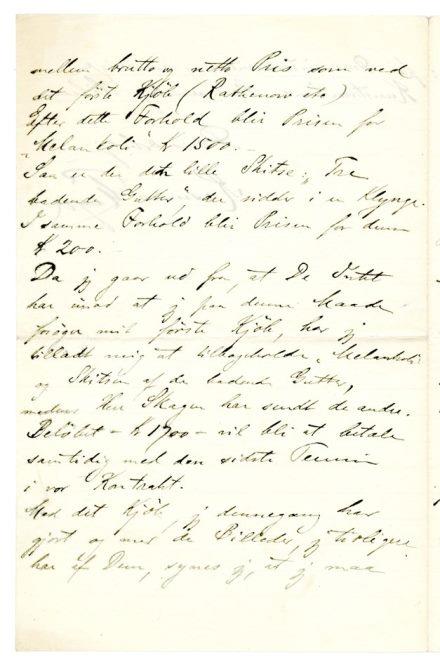 mellem brutto og netto Pris som ved
det förste Kjöb (Rathenow etc)
Efter dette Forhold blir Prisen for
"Melankoli" K 1500.-
Saa er der den lille Skitse: "Tre
badende Gutter", der sidder i en Klynge.
I samme Forhold blir Prisen for denne
K 200.-
Da jeg gaar ud fra, at De Intet
har imod at jeg paa denne Maade
forøger mit förste Kjöb, har jeg
tilladt mig at tilbageholde "Melankoli
og Skitsen af de badende Gutter,
medens Herr Skagen har sendt de andre.
Belöbet - K 1700 - vil bli at betale
samtidig med den sidste Termin
i vor Kontrakt.
Med det Kjöb, jeg dennegang har
gjort og med de Billeder, jeg tidligere
har af Dem, synes jeg, at jeg maa